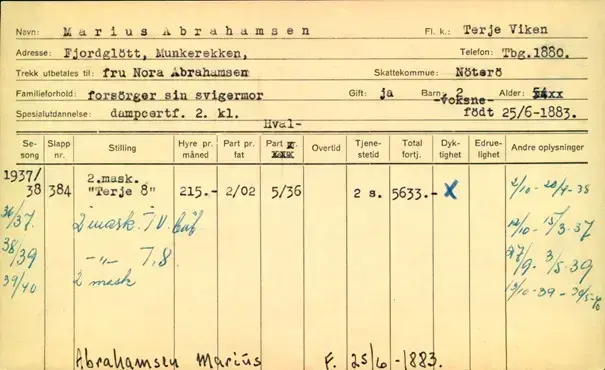 Navn: Marius Abrahamsen Fl. k.: Terje Viken
Adresse: Fjordglött, Munkerekken, Telefon: Tbg.1880.
Trekk utbetales til: fru Nora Abrahamsen Skattekommune: Nöterö
Familieforhold: forsörger sin svigermor Gift: ja Barn: 2 -voksne- Alder: 54xx
Spesialutdannelse: dampcertf. 2. kl. födt 25/6-1883.
Hval-
Se-song Slapp nr. Stilling Hyre pr. måned Part pr. fat Part pr. Overtid Tjene-stetid Total fortj. Dyk-tighet Edrue-lighet Andre oplysninger
1937/ 2.mask.
38 384 "Terje 8" 215.- 2/02 5/36 2 s. 5633.- X 2/10 - 20/4-38
36/37. 2 mask. T.V. 12/10- 15/3-37
38/39 -"- T.8 27/9- 3/5-39
39/40 2 mask 13/10-39 - 30/5-40
Abrahamsen Marius F. 25/6-1883.